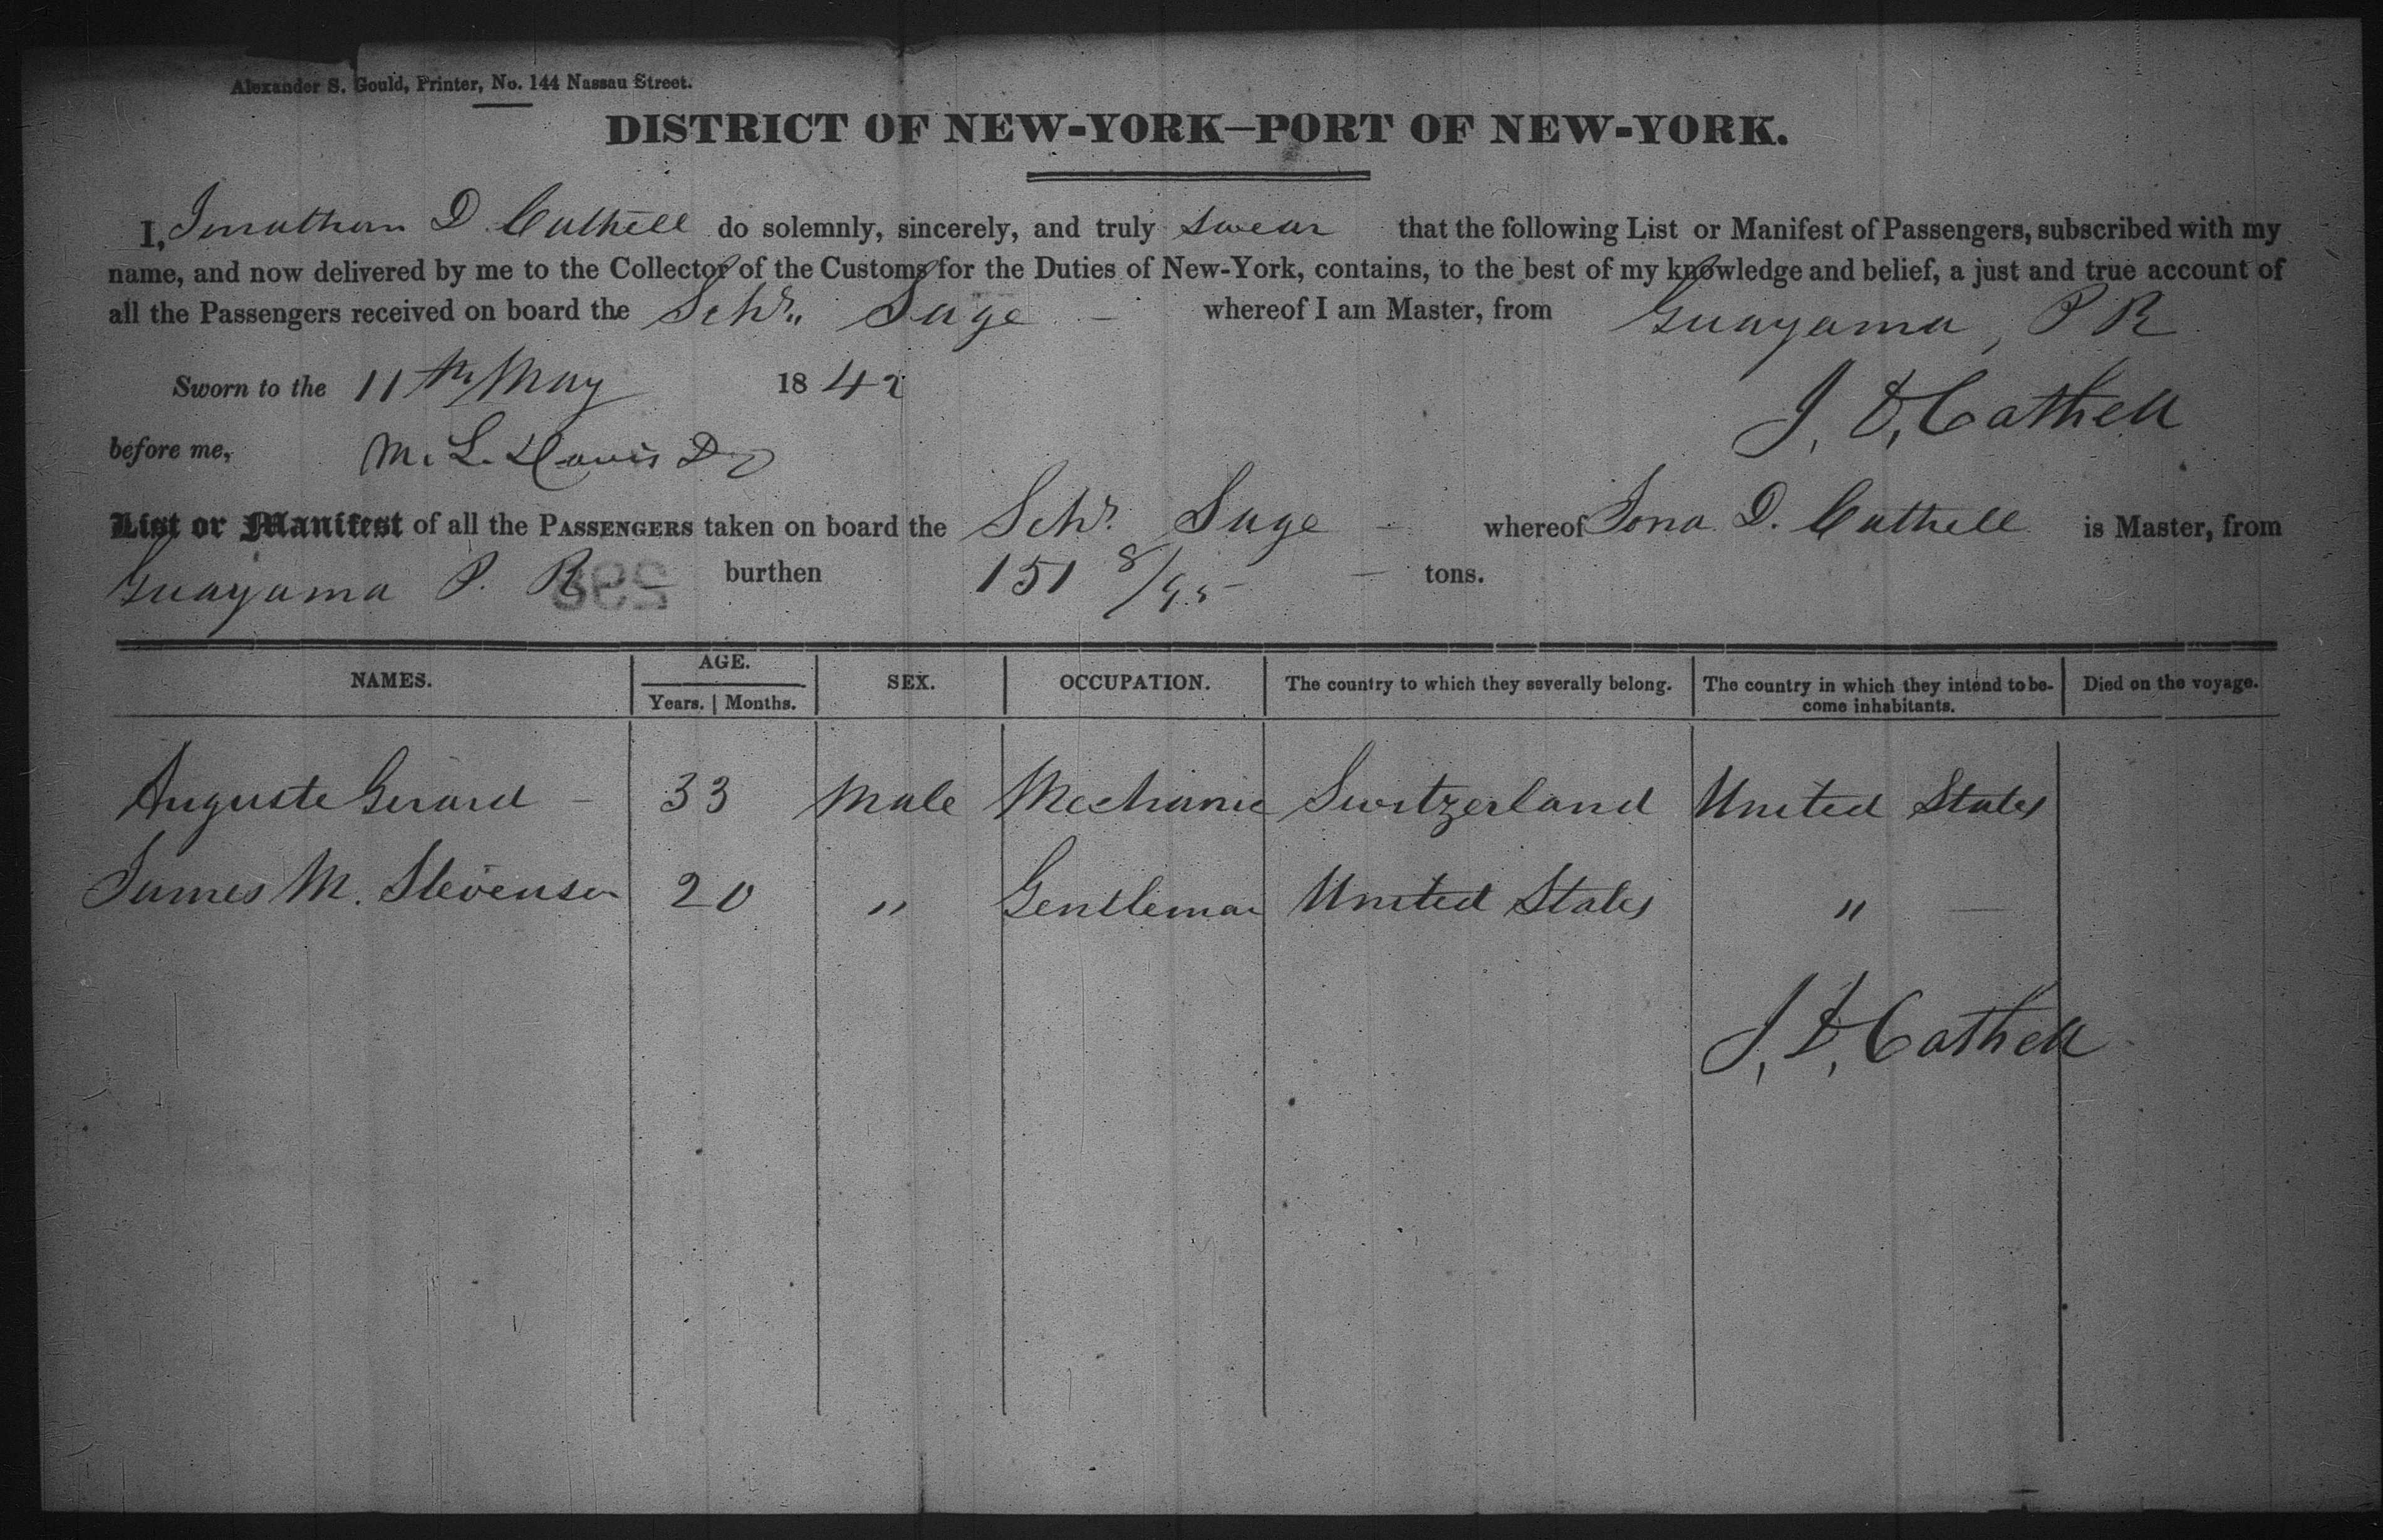 Alexander S. Gould, Printer, No. 144 Nassau Street.
DISTRICT OF NEW-YORK—PORT OF NEW-YORK.
I, Jonathan D. Cathell do solemnly, sincerely, and truly swear that the following List or Manifest of Passengers, subscribed with my
name, and now delivered by me to the Collector of the Customs for the Duties of New-York, contains, to the best of my knowledge and belief, a just and true account of
all the Passengers received on board the Schr. Sage whereof I am Master, from Guayama, P R
Sworn to the 11th May 1842
J. D. Cathell
before me, M. L. Davis
List or Manifest of all the PASSENGERS taken on board the Schr. Sage whereof Jona D. Cathell is Master, from
Guayama P. R burthen 151 8/95 tons.
NAMES. AGE. SEX. OCCUPATION. The country to which they severally belong. The country in which they intend to be- Died on the voyage.
Years. Months. come inhabitants.
Auguste Gerard - 33 Male Mechanic Switzerland United States
James M. Stevenson 20 " Gentleman United States "
J. D. Cathell